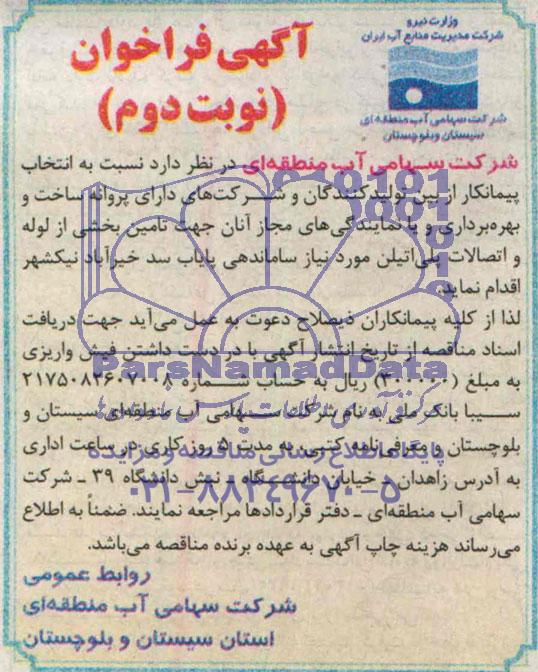 وزارت نیرو
شرکت مدیریت منابع آب ایران
شرکت سهامی آب منطقه‌ای
سیستان وبلوچستان
آگهی فراخوان
(نوبت دوم)
شرکت سهامی آب منطقه‌ای در نظر دارد نسبت به انتخاب
پیمانکار از بین تولیدکنندگان و شرکت‌های دارای پروانه ساخت و
بهره‌برداری و یا نمایندگی‌های مجاز آنان جهت تامین بخشی از لوله
و اتصالات پلی‌اتیلن مورد نیاز ساماندهی پایاب سد خیرآباد نیکشهر
اقدام نماید.
لذا از کلیه پیمانکاران ذیصلاح دعوت به عمل می‌آید جهت دریافت
اسناد مناقصه از تاریخ انتشار آگهی با در دست داشتن فیش واریزی
به مبلغ (۳۰۰۰۰۰) ریال به حساب شماره ۲۱۷۵۰۸۲۶۰۷۰۰۸
سیبا بانک ملی به نام شرکت سهامی آب منطقه‌ای سیستان و
بلوچستان و معرفی‌نامه کتبی به مدت ۵ روز کاری در ساعت اداری
به آدرس زاهدان ـ خیابان دانشگاه ـ نبش دانشگاه ۳۹ ـ شرکت
سهامی آب منطقه‌ای ـ دفتر قراردادها مراجعه نمایند. ضمناً به اطلاع
می‌رساند هزینه چاپ آگهی به عهده برنده مناقصه می‌باشد.
روابط عمومی
شرکت سهامی آب منطقه‌ای
استان سیستان و بلوچستان
ParsNamadData
پایگاه اطلاع رسانی مناقصه و مزایده
۰۲۱-۸۸۳۴۹۶۷۰-۵